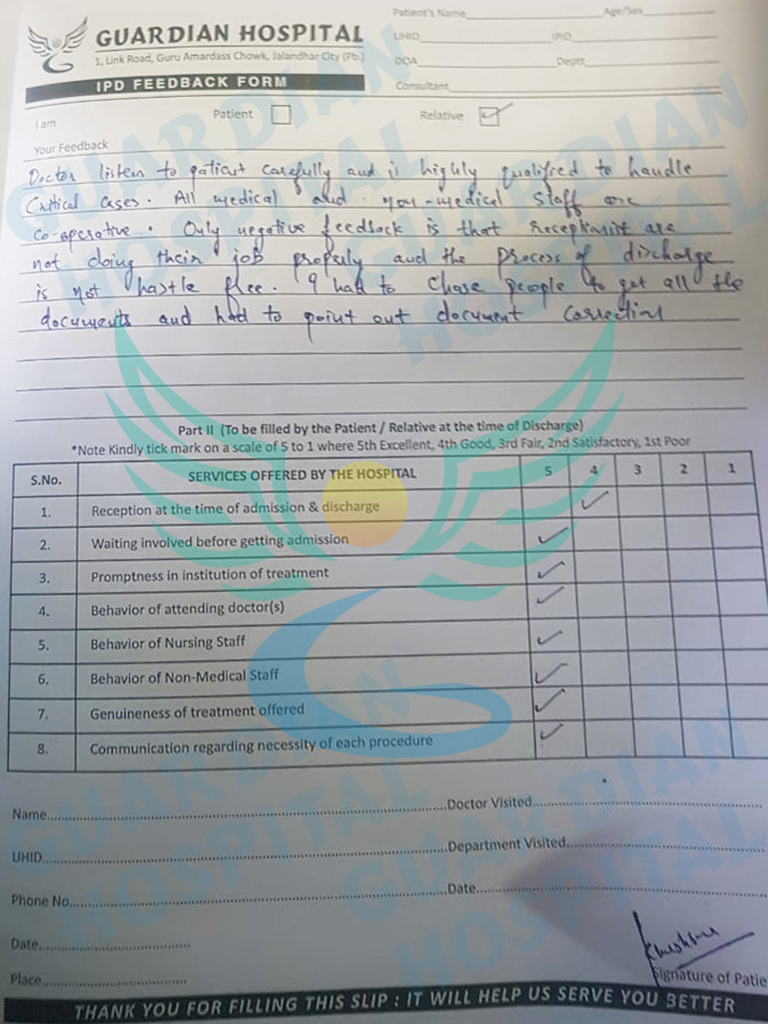 GUARDIAN HOSPITAL
1, Link Road, Guru Amardass Chowk, Jalandhar City (Pb.)
IPD FEEDBACK FORM
Patient's Name Age/Sex
UHID IPID
DOA Deptt
Consultant
I am Patient Relative ✓
Your Feedback
Doctor listens to patient carefully and is highly qualified to handle
Critical Cases. All medical and non-medical staff are
Co-operative. Only negative feedback is that receptionist are
not doing their job properly and the process of discharge
is not hastle free. I had to chase people to get all the
documents and had to point out document correction
Part II (To be filled by the Patient / Relative at the time of Discharge)
*Note Kindly tick mark on a scale of 5 to 1 where 5th Excellent, 4th Good, 3rd Fair, 2nd Satisfactory, 1st Poor
S.No. SERVICES OFFERED BY THE HOSPITAL 5 4 3 2 1
1. Reception at the time of admission & discharge ✓
2. Waiting involved before getting admission ✓
3. Promptness in institution of treatment ✓
4. Behavior of attending doctor(s) ✓
5. Behavior of Nursing Staff ✓
6. Behavior of Non-Medical Staff ✓
7. Genuineness of treatment offered ✓
8. Communication regarding necessity of each procedure ✓
Name Doctor Visited
UHID Department Visited
Phone No. Date
Date
Place Signature of Patie
THANK YOU FOR FILLING THIS SLIP : IT WILL HELP US SERVE YOU BETTER
GUARDIAN HOSPITAL